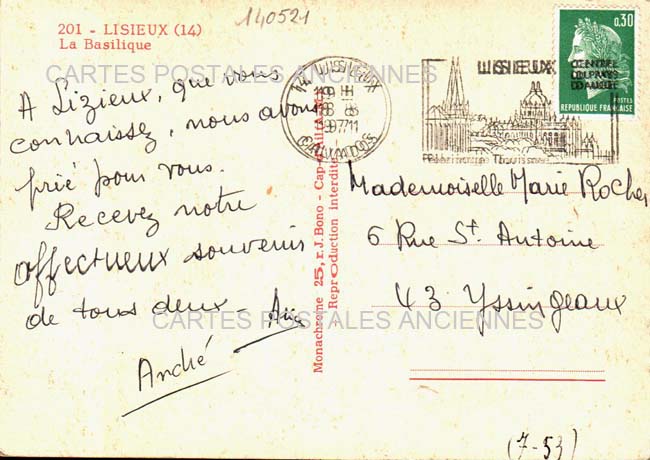 140521
201 - LISIEUX (14)
La Basilique
CARTES POSTALES ANCIENNES
A Lizieux, que vous
connaissez, nous avons
prié pour vous.
Recevez notre
affectueux souvenir
de tous deux.
André
Monachrome 25, r. J. Bono - Cap
Reproduction interdite
14 LISIEUX
1971
CALVADOS
LISIEUX CENTRE
DU PAYS
D'AUGE
Pèlerinage Tourisme
0,30
POSTES
REPUBLIQUE FRANÇAISE
Mademoiselle Marie Rocher
6 Rue St Antoine
43 Yssingeaux
CARTES POSTALES ANCIENNES
(7-53)